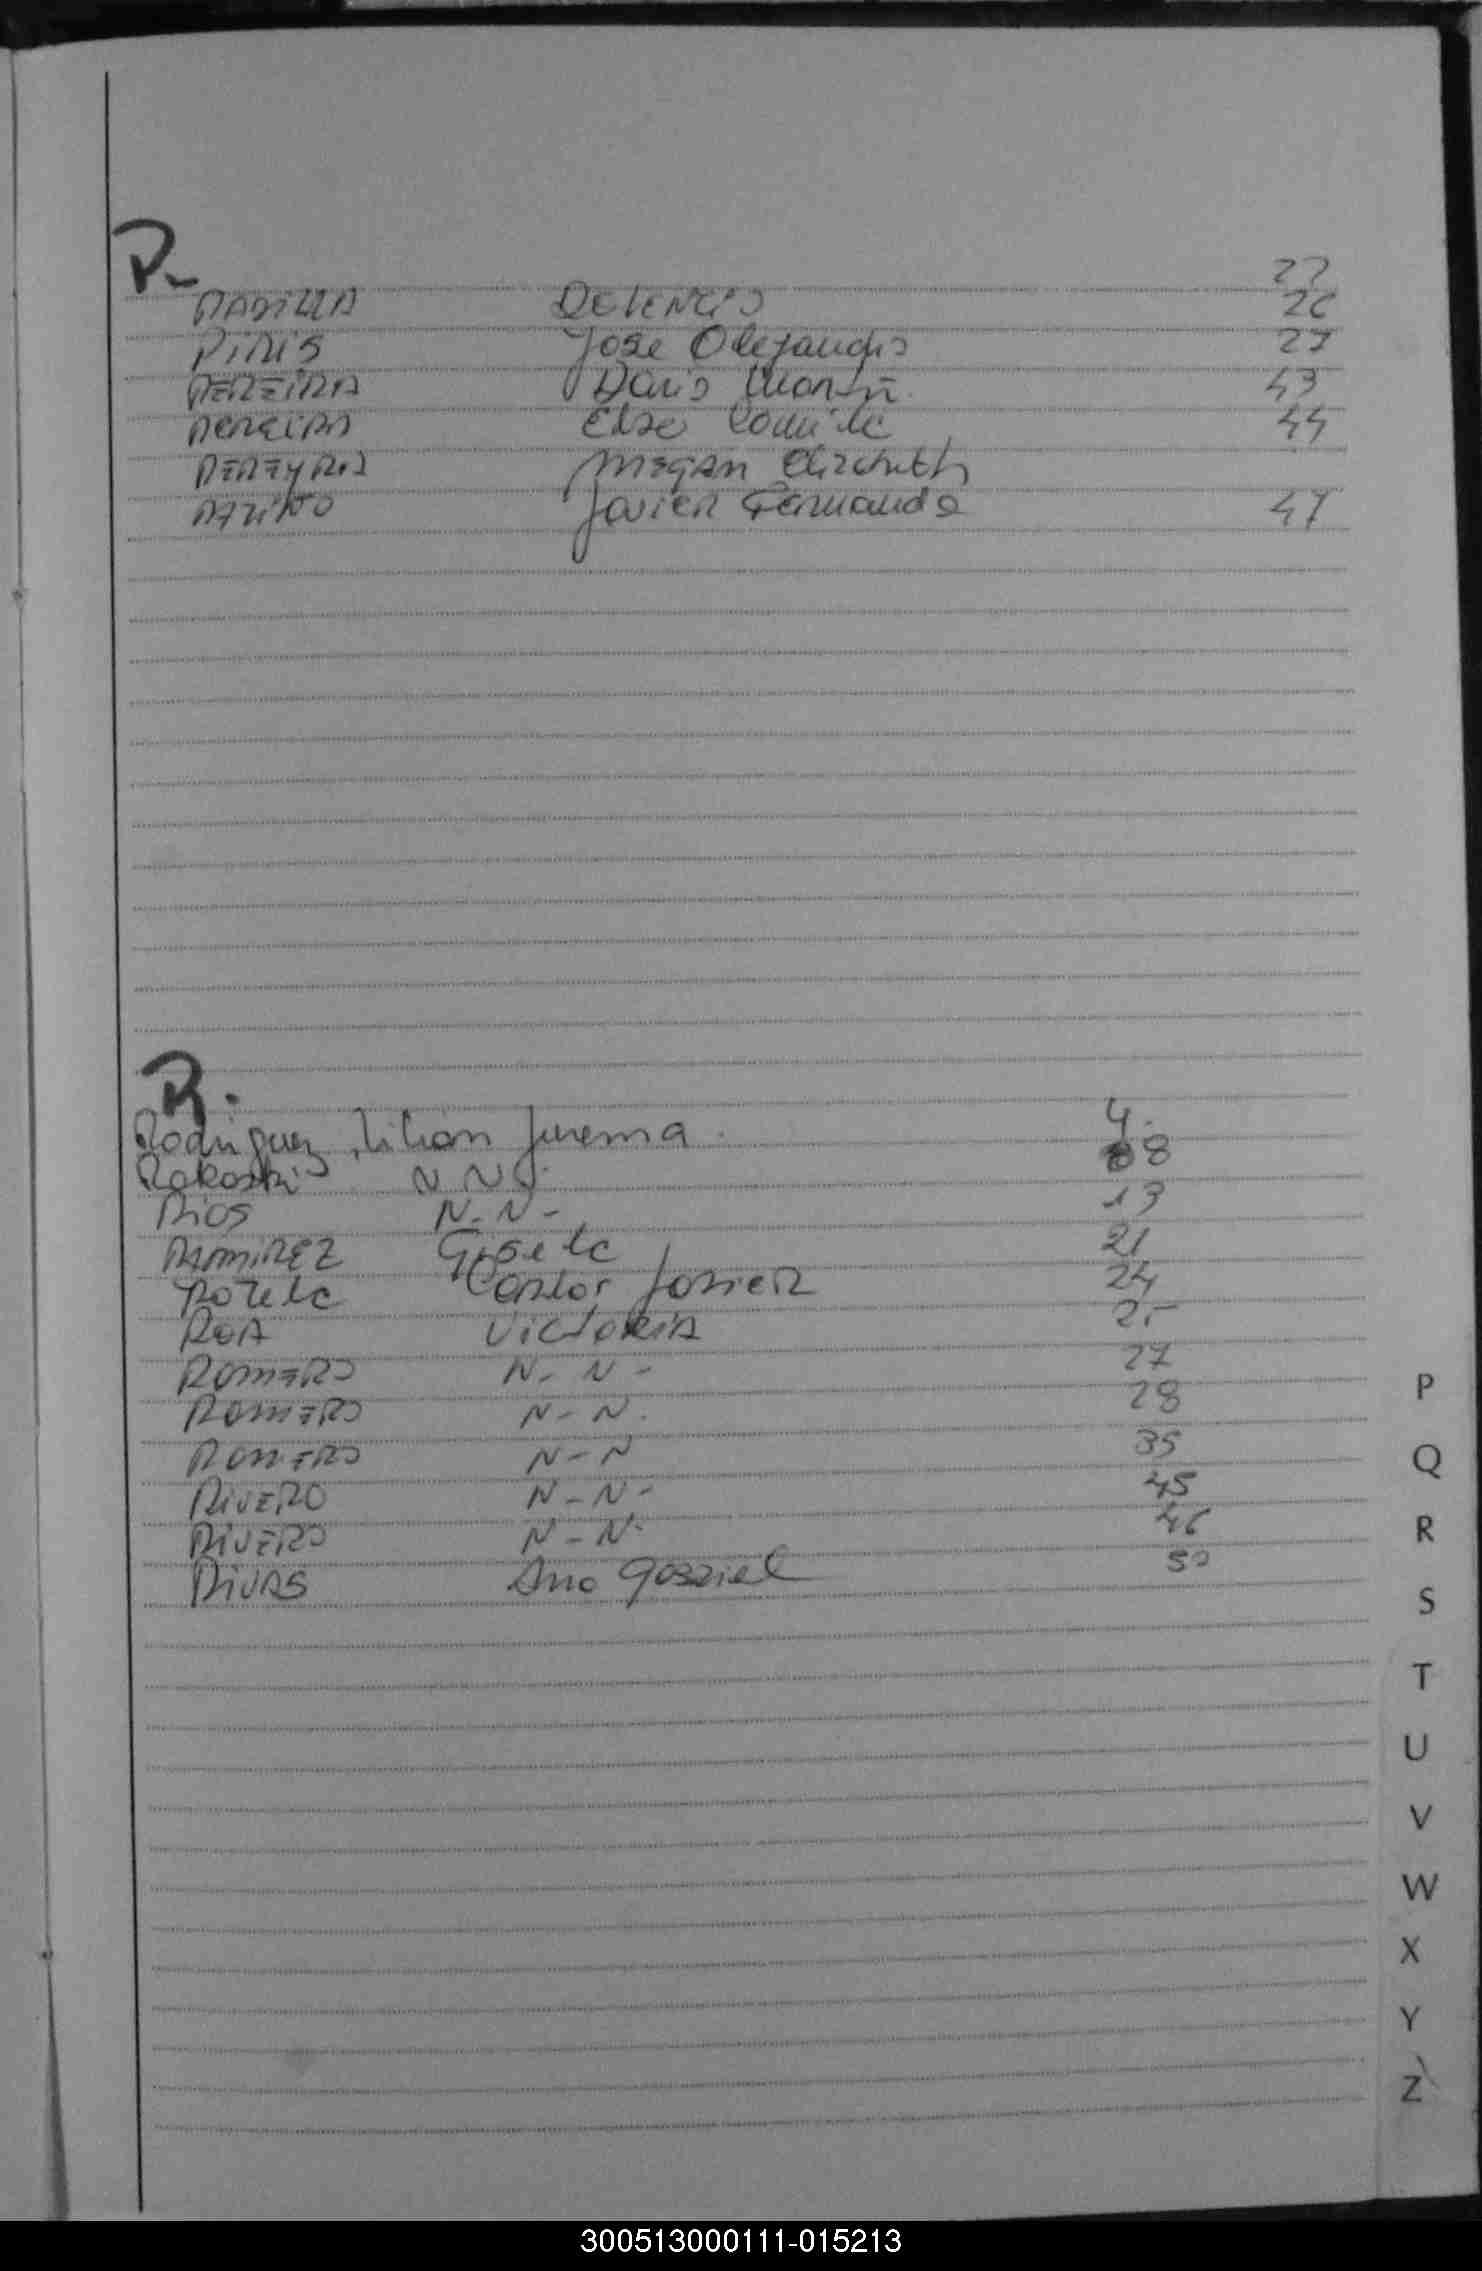 P-
PADILLA Delencio 22
PIRIS Jose Alejandro 26
PEREIRA Dario Martin. 27
PEREIRA Elsa Camila 43
PEREYRA Megan Elizabeth 44
Javier Fernando 47
R.
Rodriguez, Lilian Jurema. 4.
Rakoski N N. 8
RIOS N-N- 13
RAMIREZ Gisela 21
Rotela Carlos Javier 24
ROA VICTORIA 25
ROMERO N-N- 27
ROMERO N-N. 28
ROMERO N-N 35
RIVERO N-N- 45
RIVERO N-N- 46
RIVAS Ana Gabriel 50
P
Q
R
S
T
U
V
W
X
Y
Z
300513000111-015213